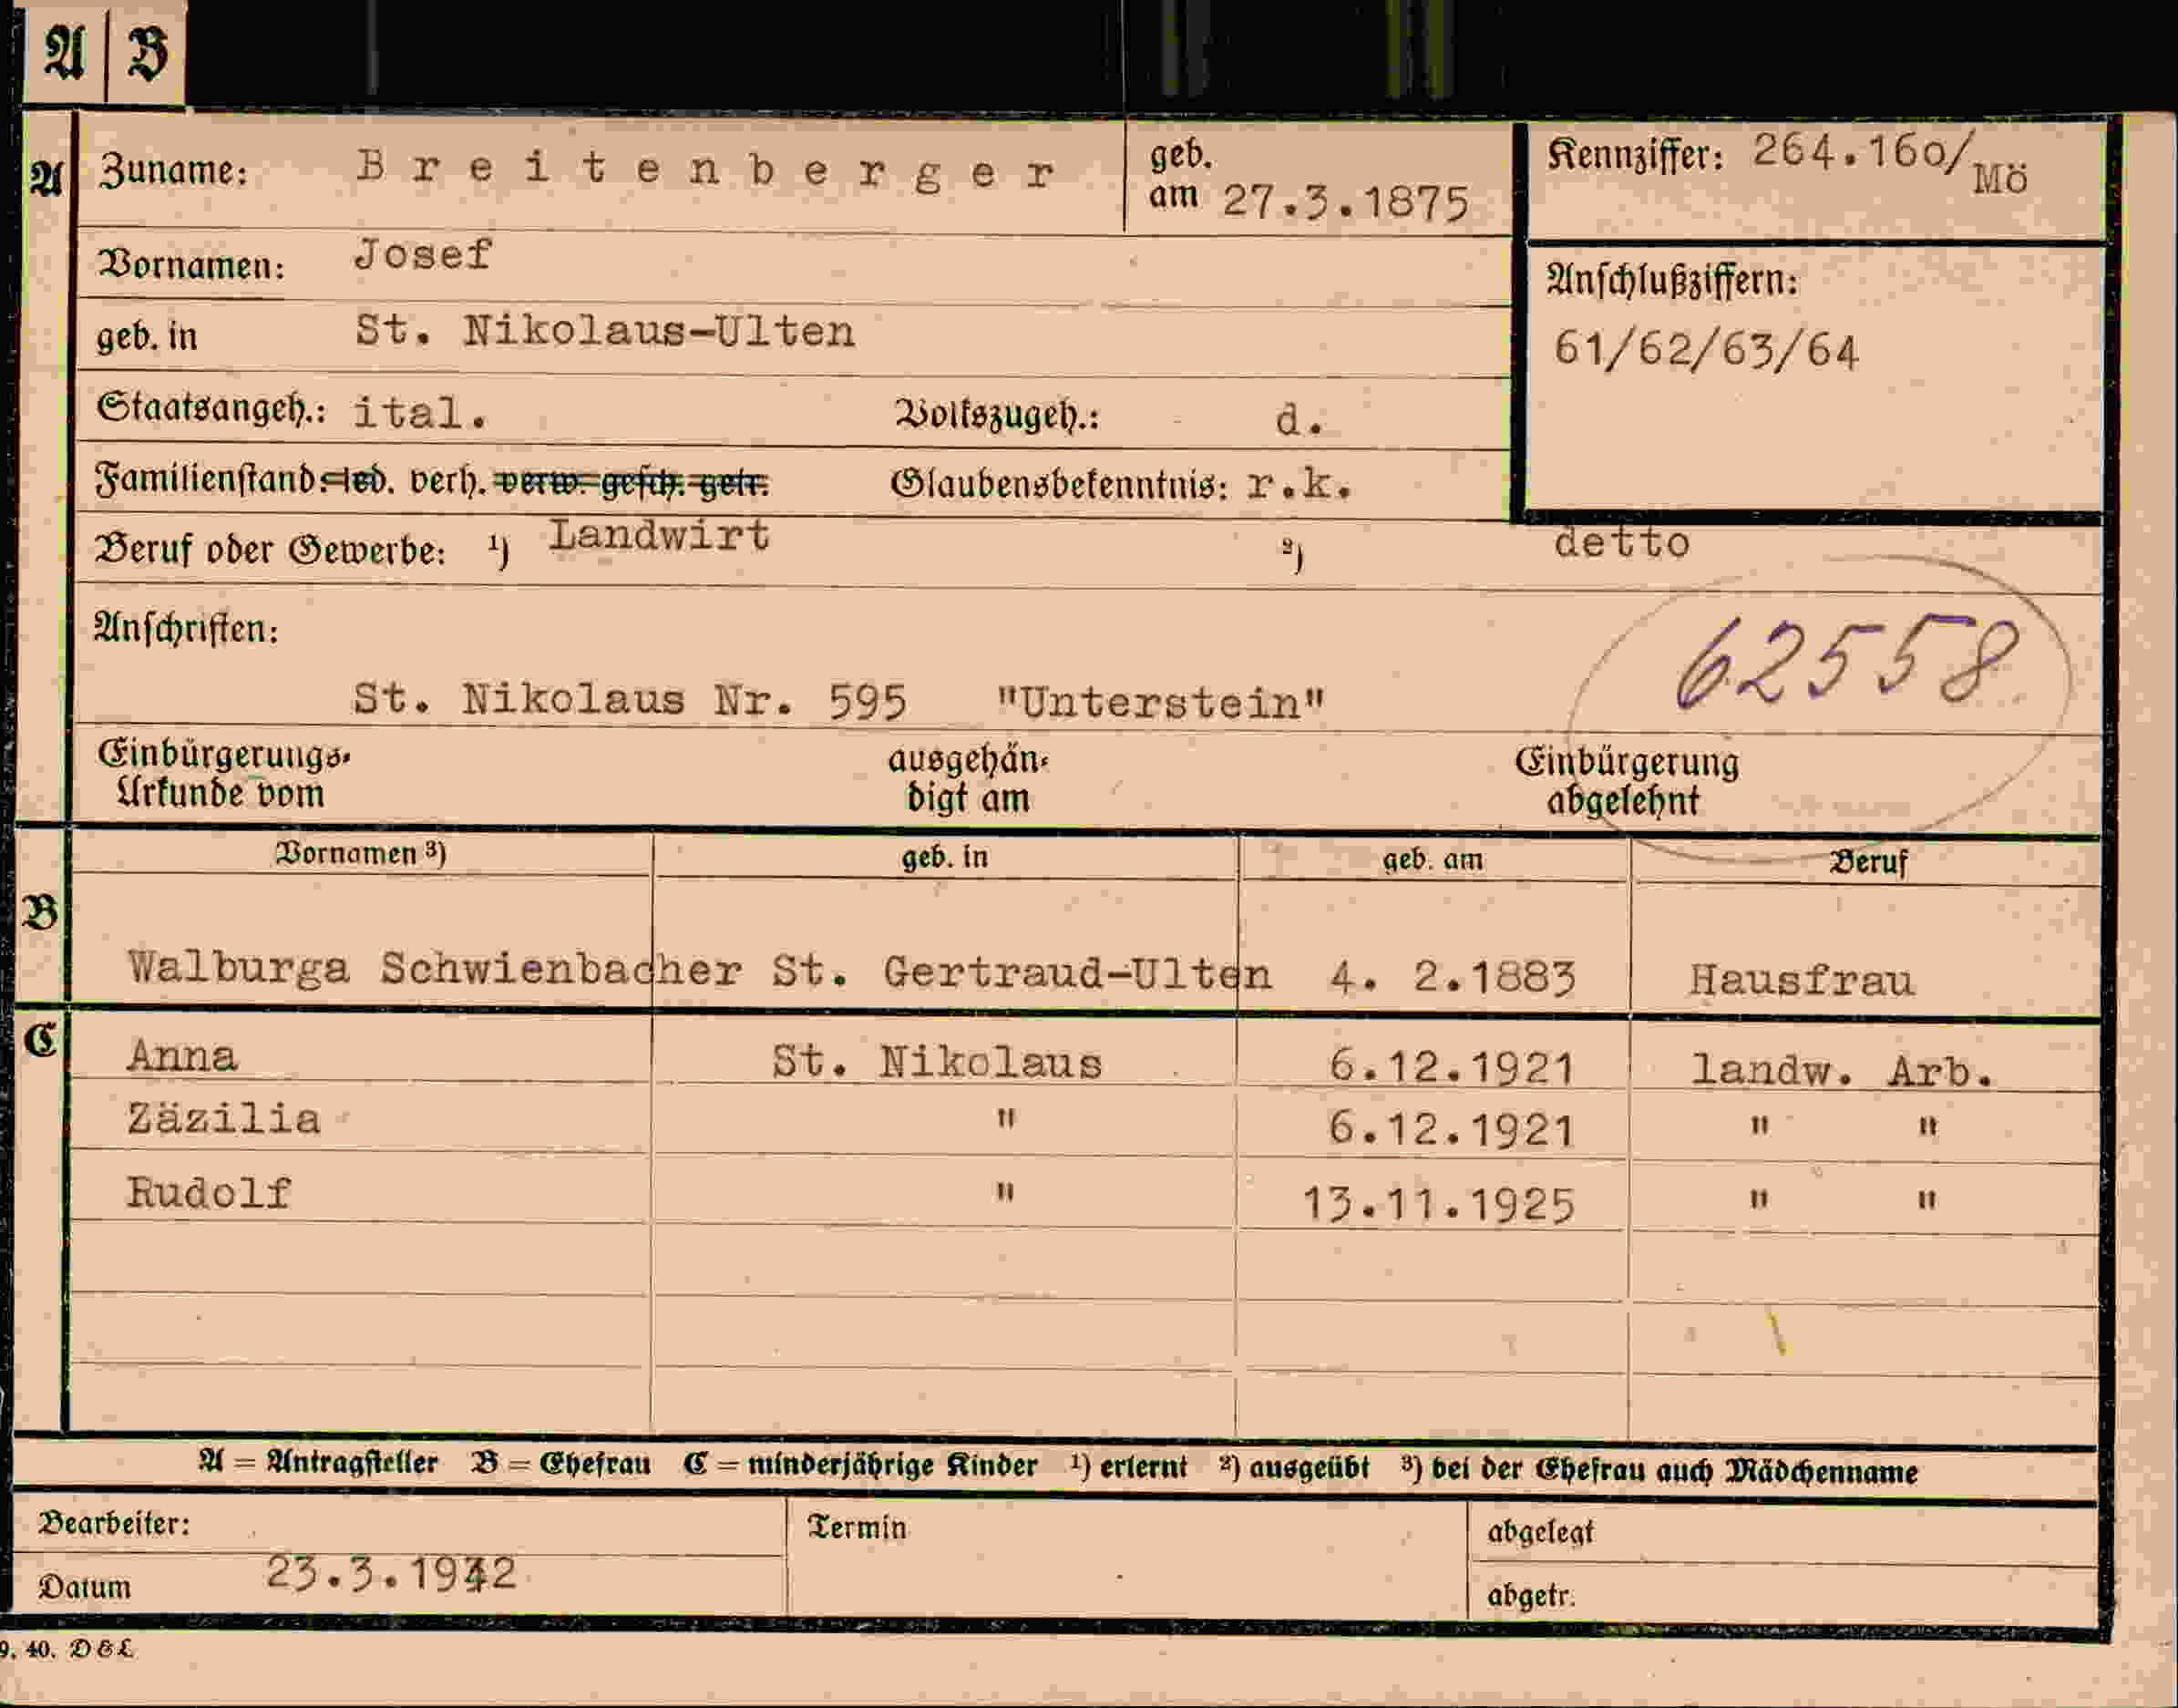 A B
A Zuname: Breitenberger geb. am 27.3.1875 Kennziffer: 264.160/Mö
Vornamen: Josef
Anschlußziffern:
geb. in St. Nikolaus-Ulten
61/62/63/64
Staatsangeh.: ital. Volkszugeh.: d.
Familienstand: led. verh. verw. gesch. getr. Glaubensbekenntnis: r.k.
Beruf oder Gewerbe: ¹) Landwirt ²) detto
Anschriften:
62558
St. Nikolaus Nr. 595 "Unterstein"
Einbürgerungs- ausgehän- Einbürgerung
Urkunde vom digt am abgelehnt
Vornamen ³) geb. in geb. am Beruf
B
Walburga Schwienbacher St. Gertraud-Ulten 4. 2.1883 Hausfrau
C Anna St. Nikolaus 6.12.1921 landw. Arb.
Zäzilia " 6.12.1921 " "
Rudolf " 13.11.1925 " "
A = Antragsteller B = Ehefrau C = minderjährige Kinder ¹) erlernt ²) ausgeübt ³) bei der Ehefrau auch Mädchenname
Bearbeiter: Termin abgelegt
Datum 23.3.1942 abgetr.
9. 40. D & L